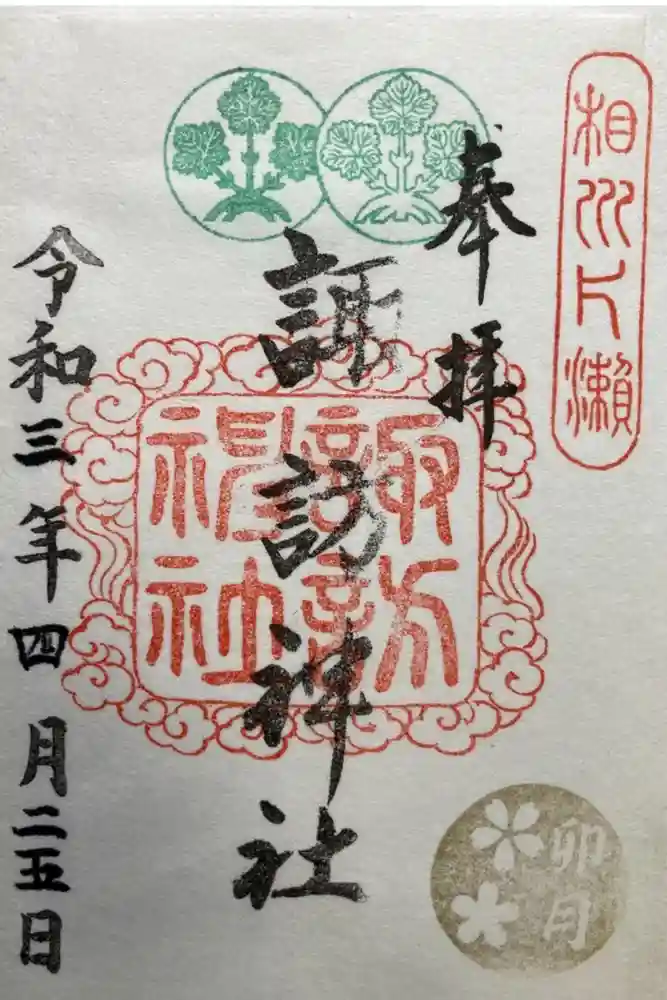 相州片瀬
奉拝
諏訪神社
諏訪
神社
卯月
令和三年四月二五日